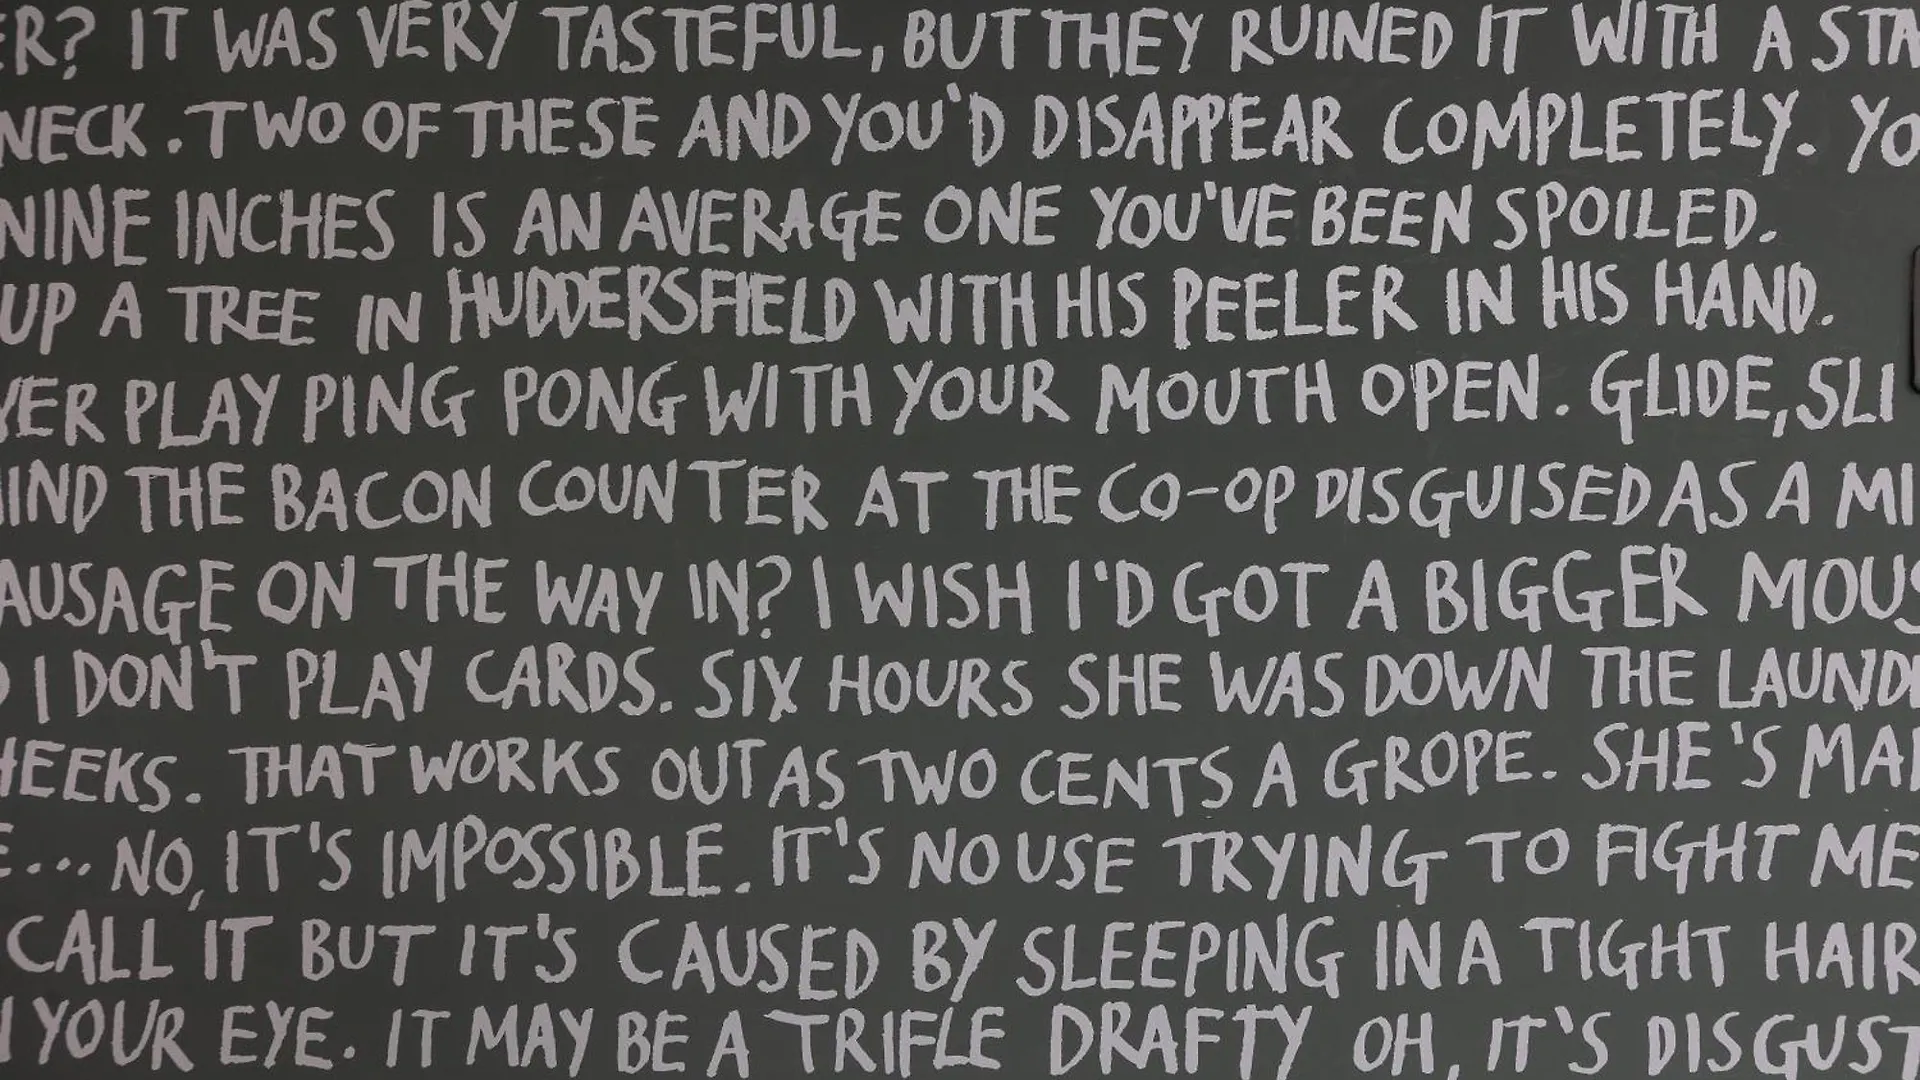 ER? IT WAS VERY TASTEFUL, BUT THEY RUINED IT WITH A STA
NECK. TWO OF THESE AND YOU'D DISAPPEAR COMPLETELY. YO
NINE INCHES IS AN AVERAGE ONE YOU'VE BEEN SPOILED.
UP A TREE IN HUDDERSFIELD WITH HIS PEELER IN HIS HAND.
VER PLAY PING PONG WITH YOUR MOUTH OPEN. GLIDE, SLI
HIND THE BACON COUNTER AT THE CO-OP DISGUISED AS A MI
AUSAGE ON THE WAY IN? I WISH I'D GOT A BIGGER MOUS
I DON'T PLAY CARDS. SIX HOURS SHE WAS DOWN THE LAUND
HEEKS. THAT WORKS OUT AS TWO CENTS A GROPE. SHE'S MA
E... NO, IT'S IMPOSSIBLE. IT'S NO USE TRYING TO FIGHT ME
CALL IT BUT IT'S CAUSED BY SLEEPING IN A TIGHT HAIR
YOUR EYE. IT MAY BE A TRIFLE DRAFTY OH, IT'S DISGUST